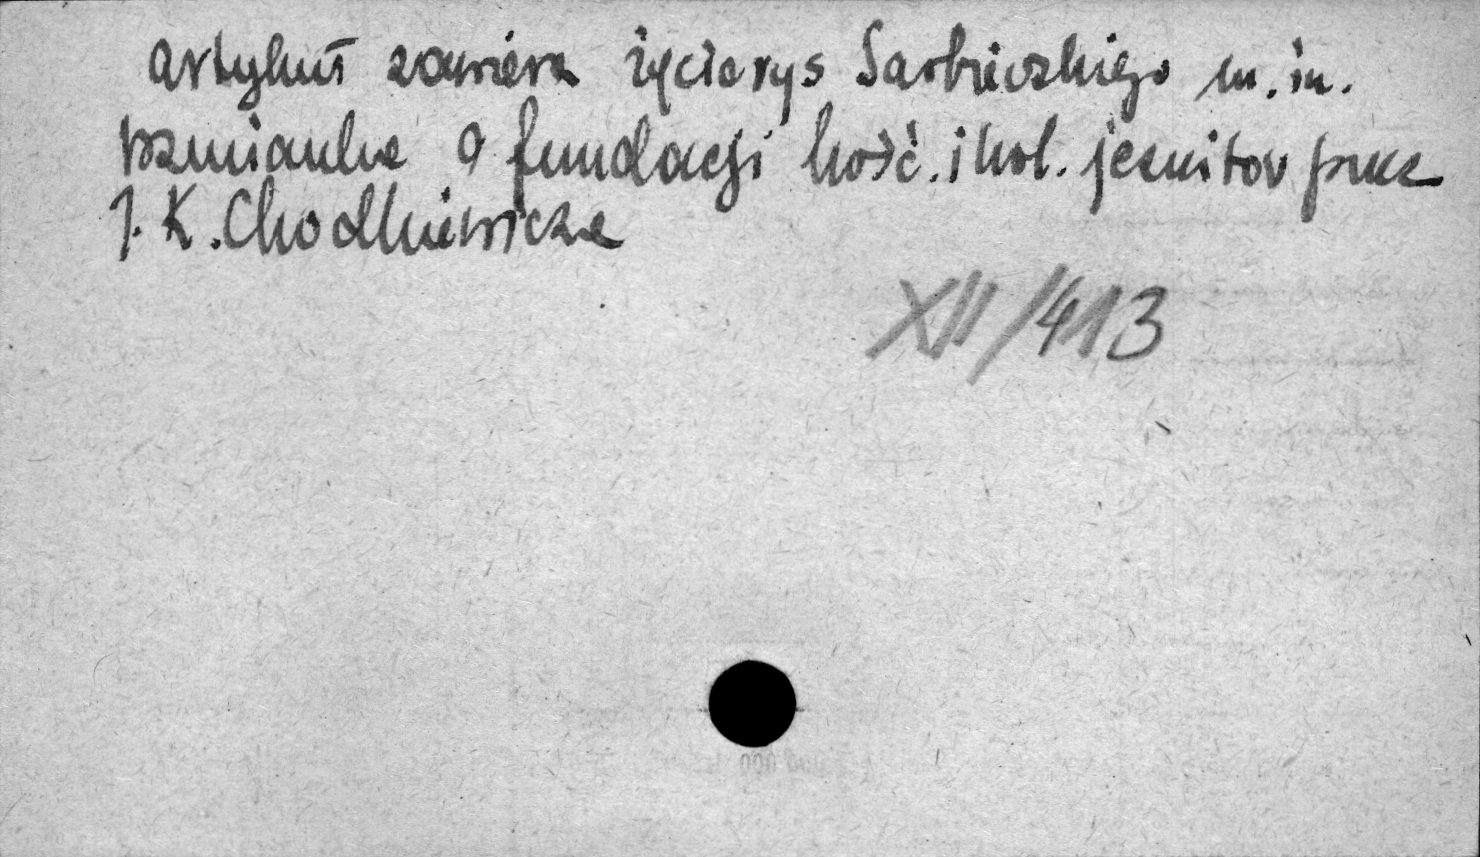 Artykuł zawiera życiorys Sarbiewskiego m. in.
wzmianka o fundacji kość. i kol. jezuitów przez
J. K. Chodkiewicza
XII/413